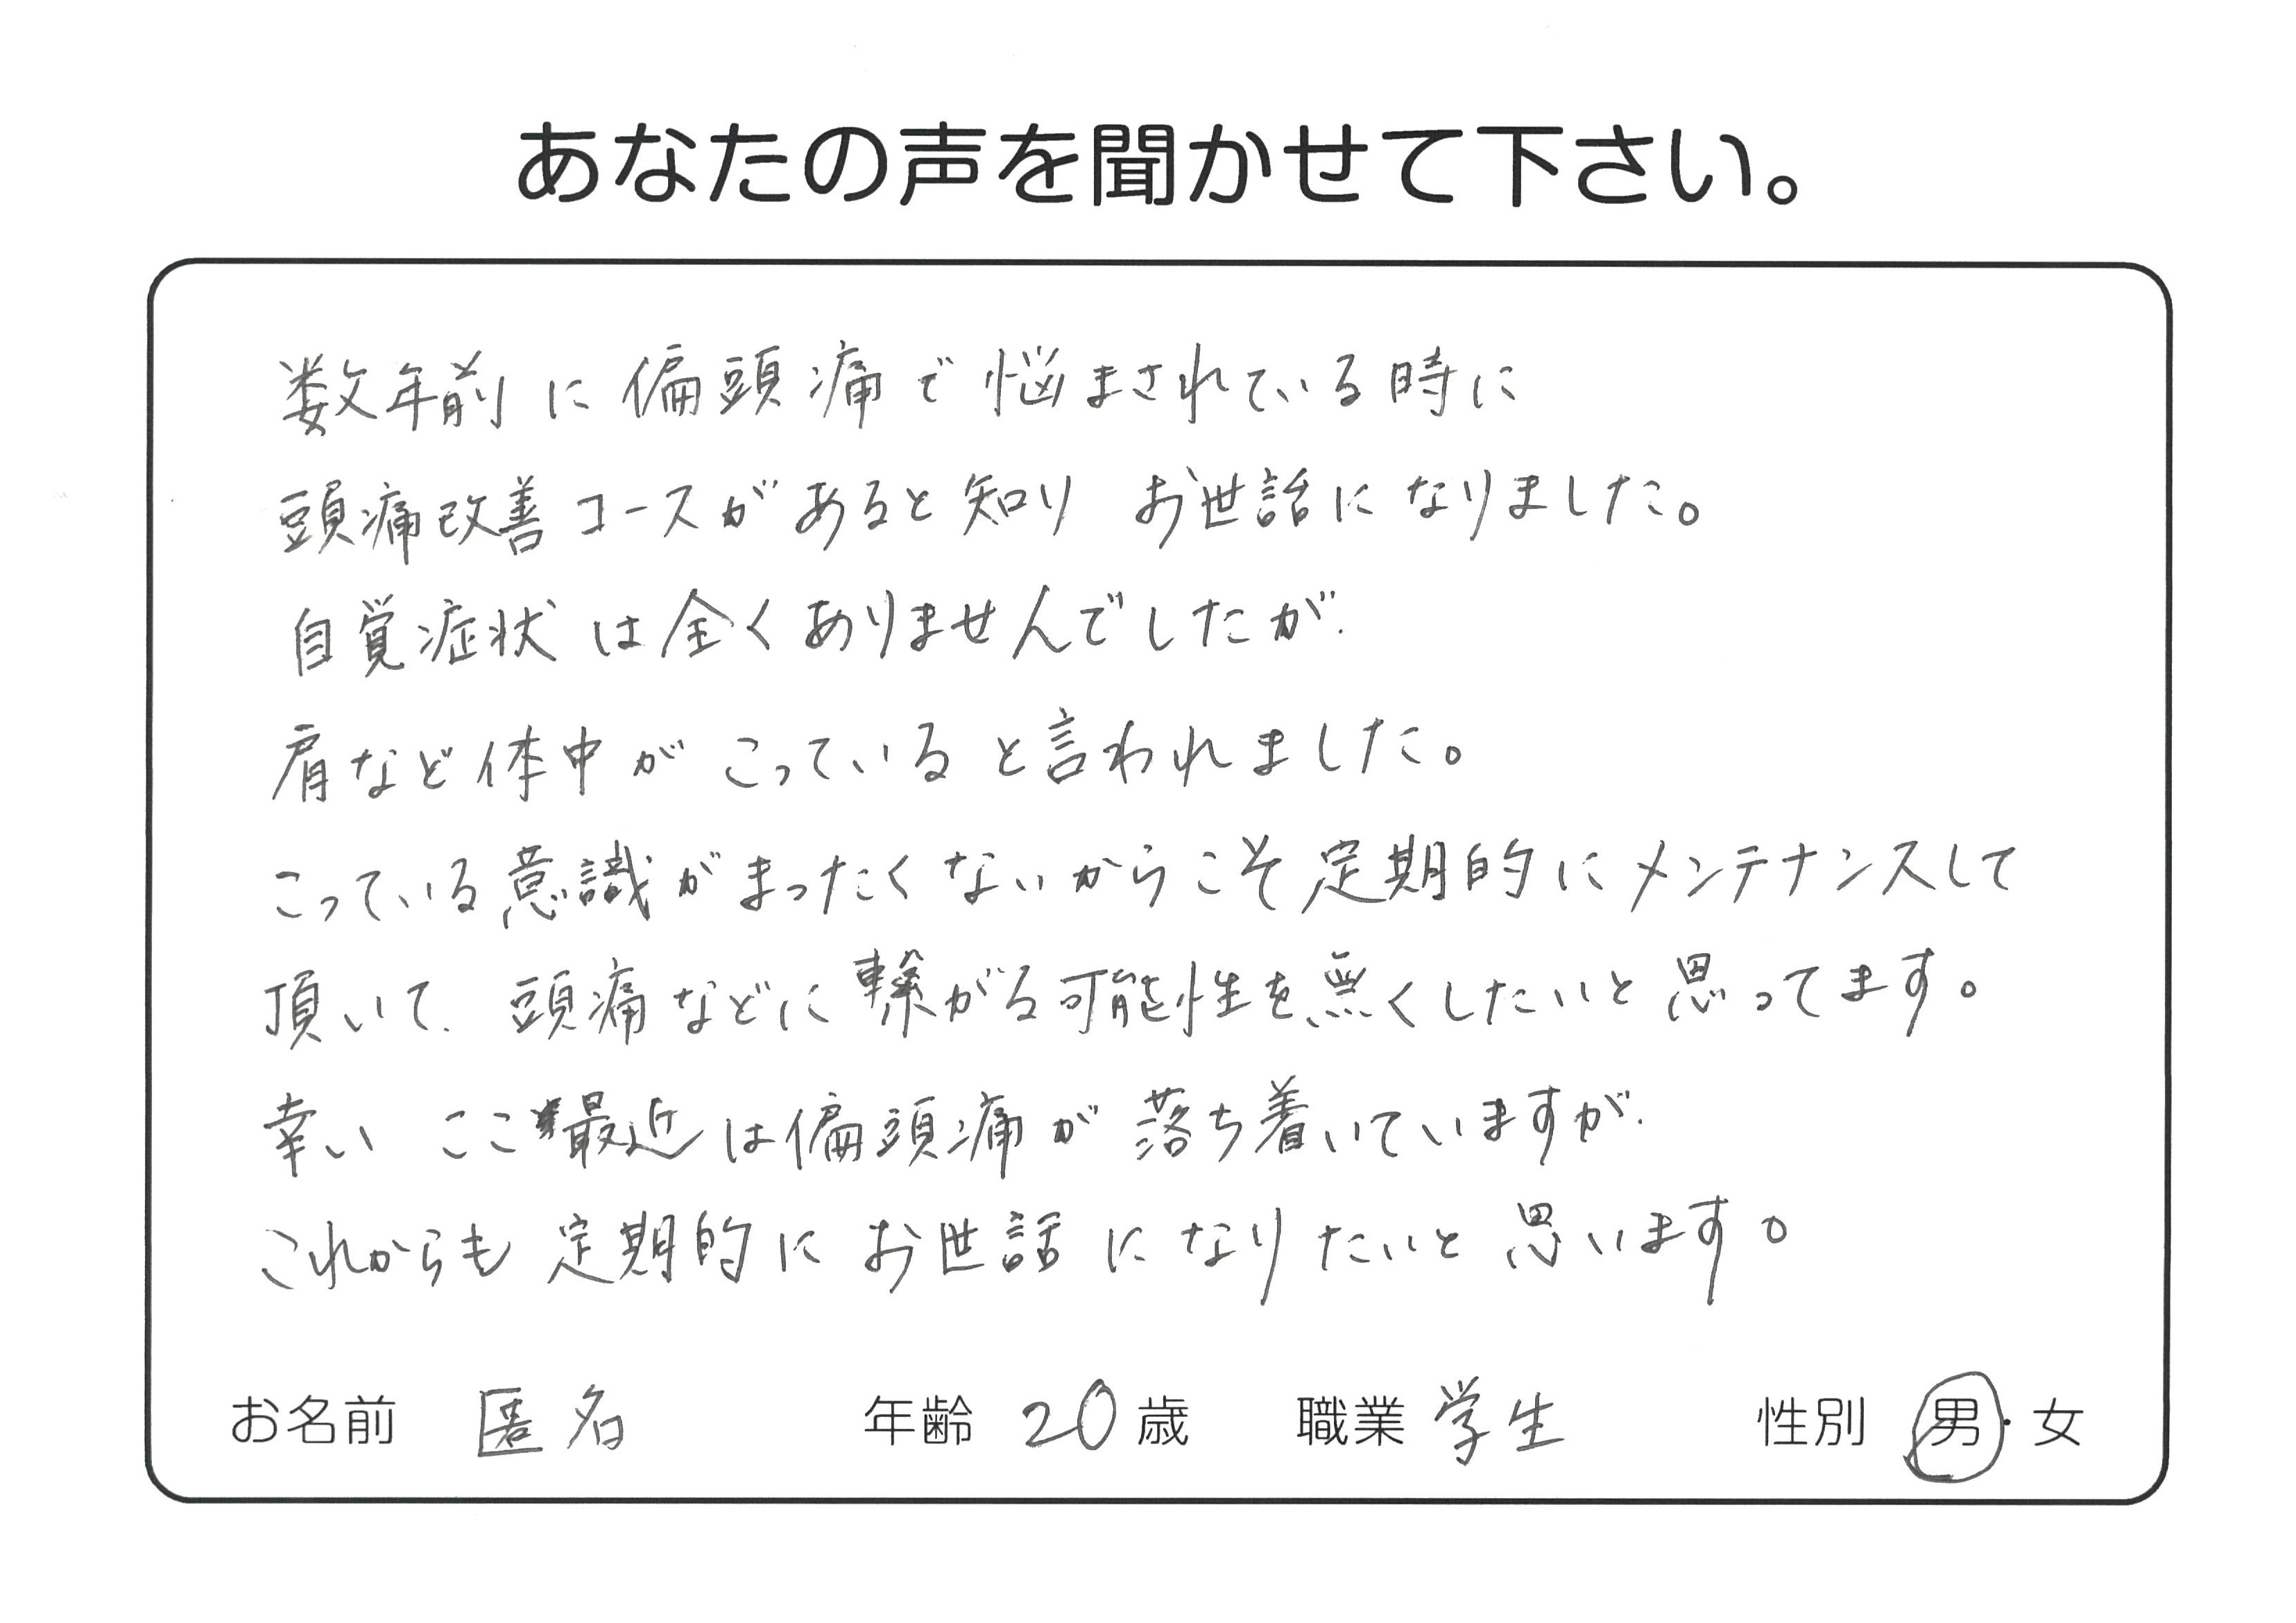 あなたの声を聞かせて下さい。
数年前に偏頭痛で悩まされている時に
頭痛改善コースがあると知り お世話になりました。
自覚症状は全くありませんでしたが、
肩など体中がこっていると言われました。
こっている意識がまったくないからこそ定期的にメンテナンスして
頂いて、頭痛などに繋がる可能性を無くしたいと思ってます。
幸い ここ最近は偏頭痛が落ち着いていますが、
これからも定期的にお世話になりたいと思います。
お名前 匿名 年齢 20歳 職業 学生 性別 男・女